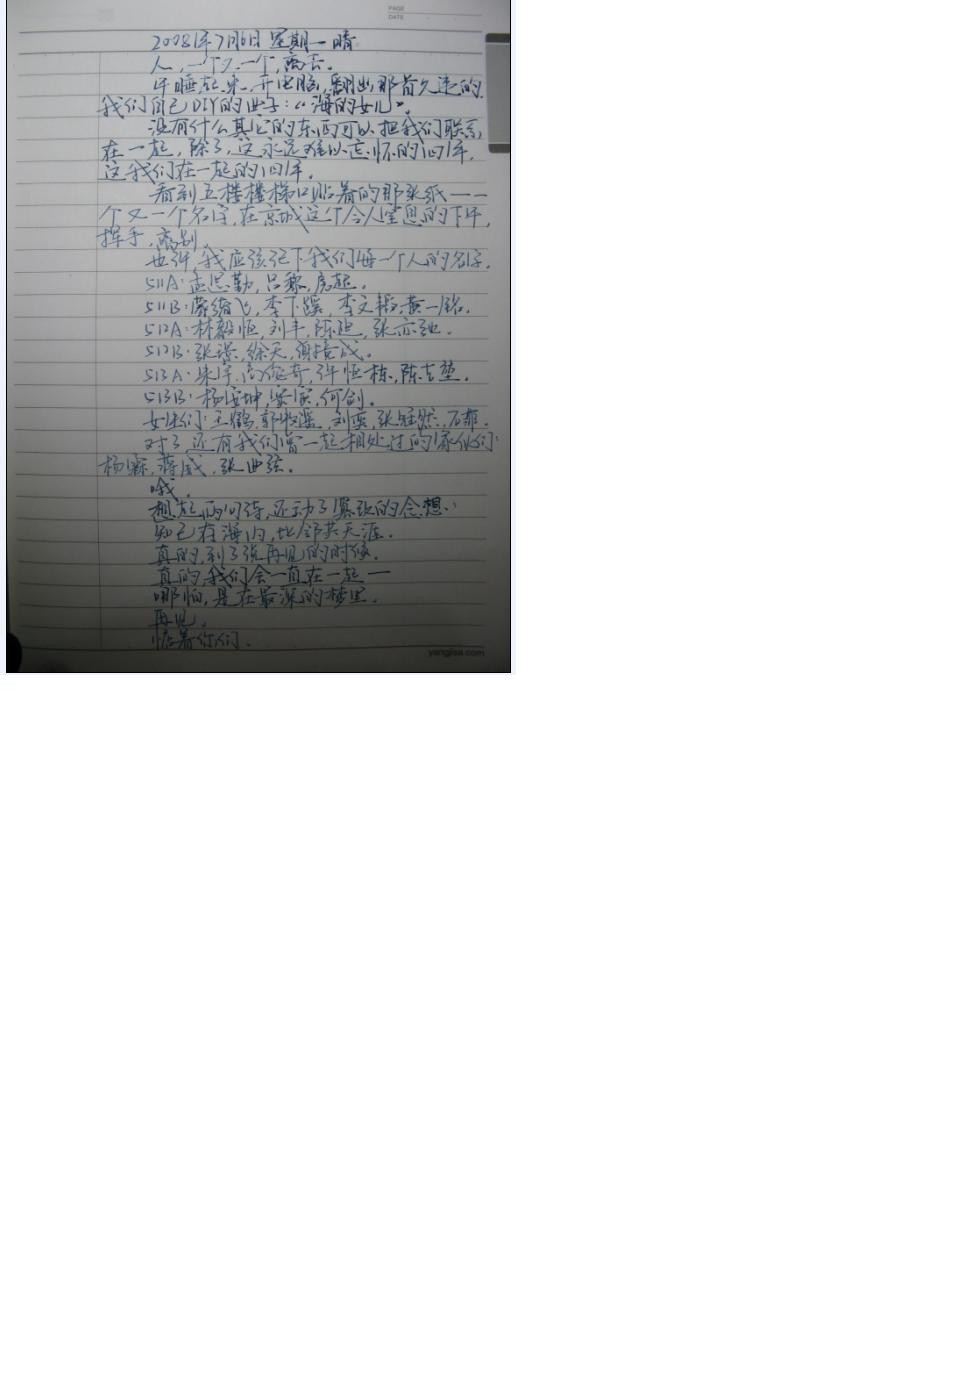 PAGE
DATE
2008年7月6日 星期一 晴
人,一个又一个,离去。
午睡起来,开电脑,翻出那首久违的
我们自己DIY的曲子:“海的女儿”。
没有什么其它的东西可以把我们联系
在一起,除了,这永远难以忘怀的四年,
这我们在一起的四年。
看到五楼楼梯口贴着的那张纸——一
个又一个名字,在京城这个令人窒息的下午,
挥手,离别。
也许,我应该记下我们每一个人的名字。
511A:孟思勤,吕
511B:飞,李,李文,黄一铭。
512A:林毅恒,刘丰,陈,张亦弛。
512B:张,徐天,成。
513A:朱宇,高奇,许恒栋,陈志
513B:杨坤,何剑。
女生们:王鹤,郭,刘,张,石
对了,还有我们曾一起相处过的家伙们:
杨霖,蒋威,张曲弦。
哦。
想起两句诗,还动了篡改的念想:
知己存海内,比邻共天涯。
真的,到了说再见的时候。
真的,我们会一直在一起—
哪怕,是在最深的梦里。
再见。
惦着你们。
yangjisa.com